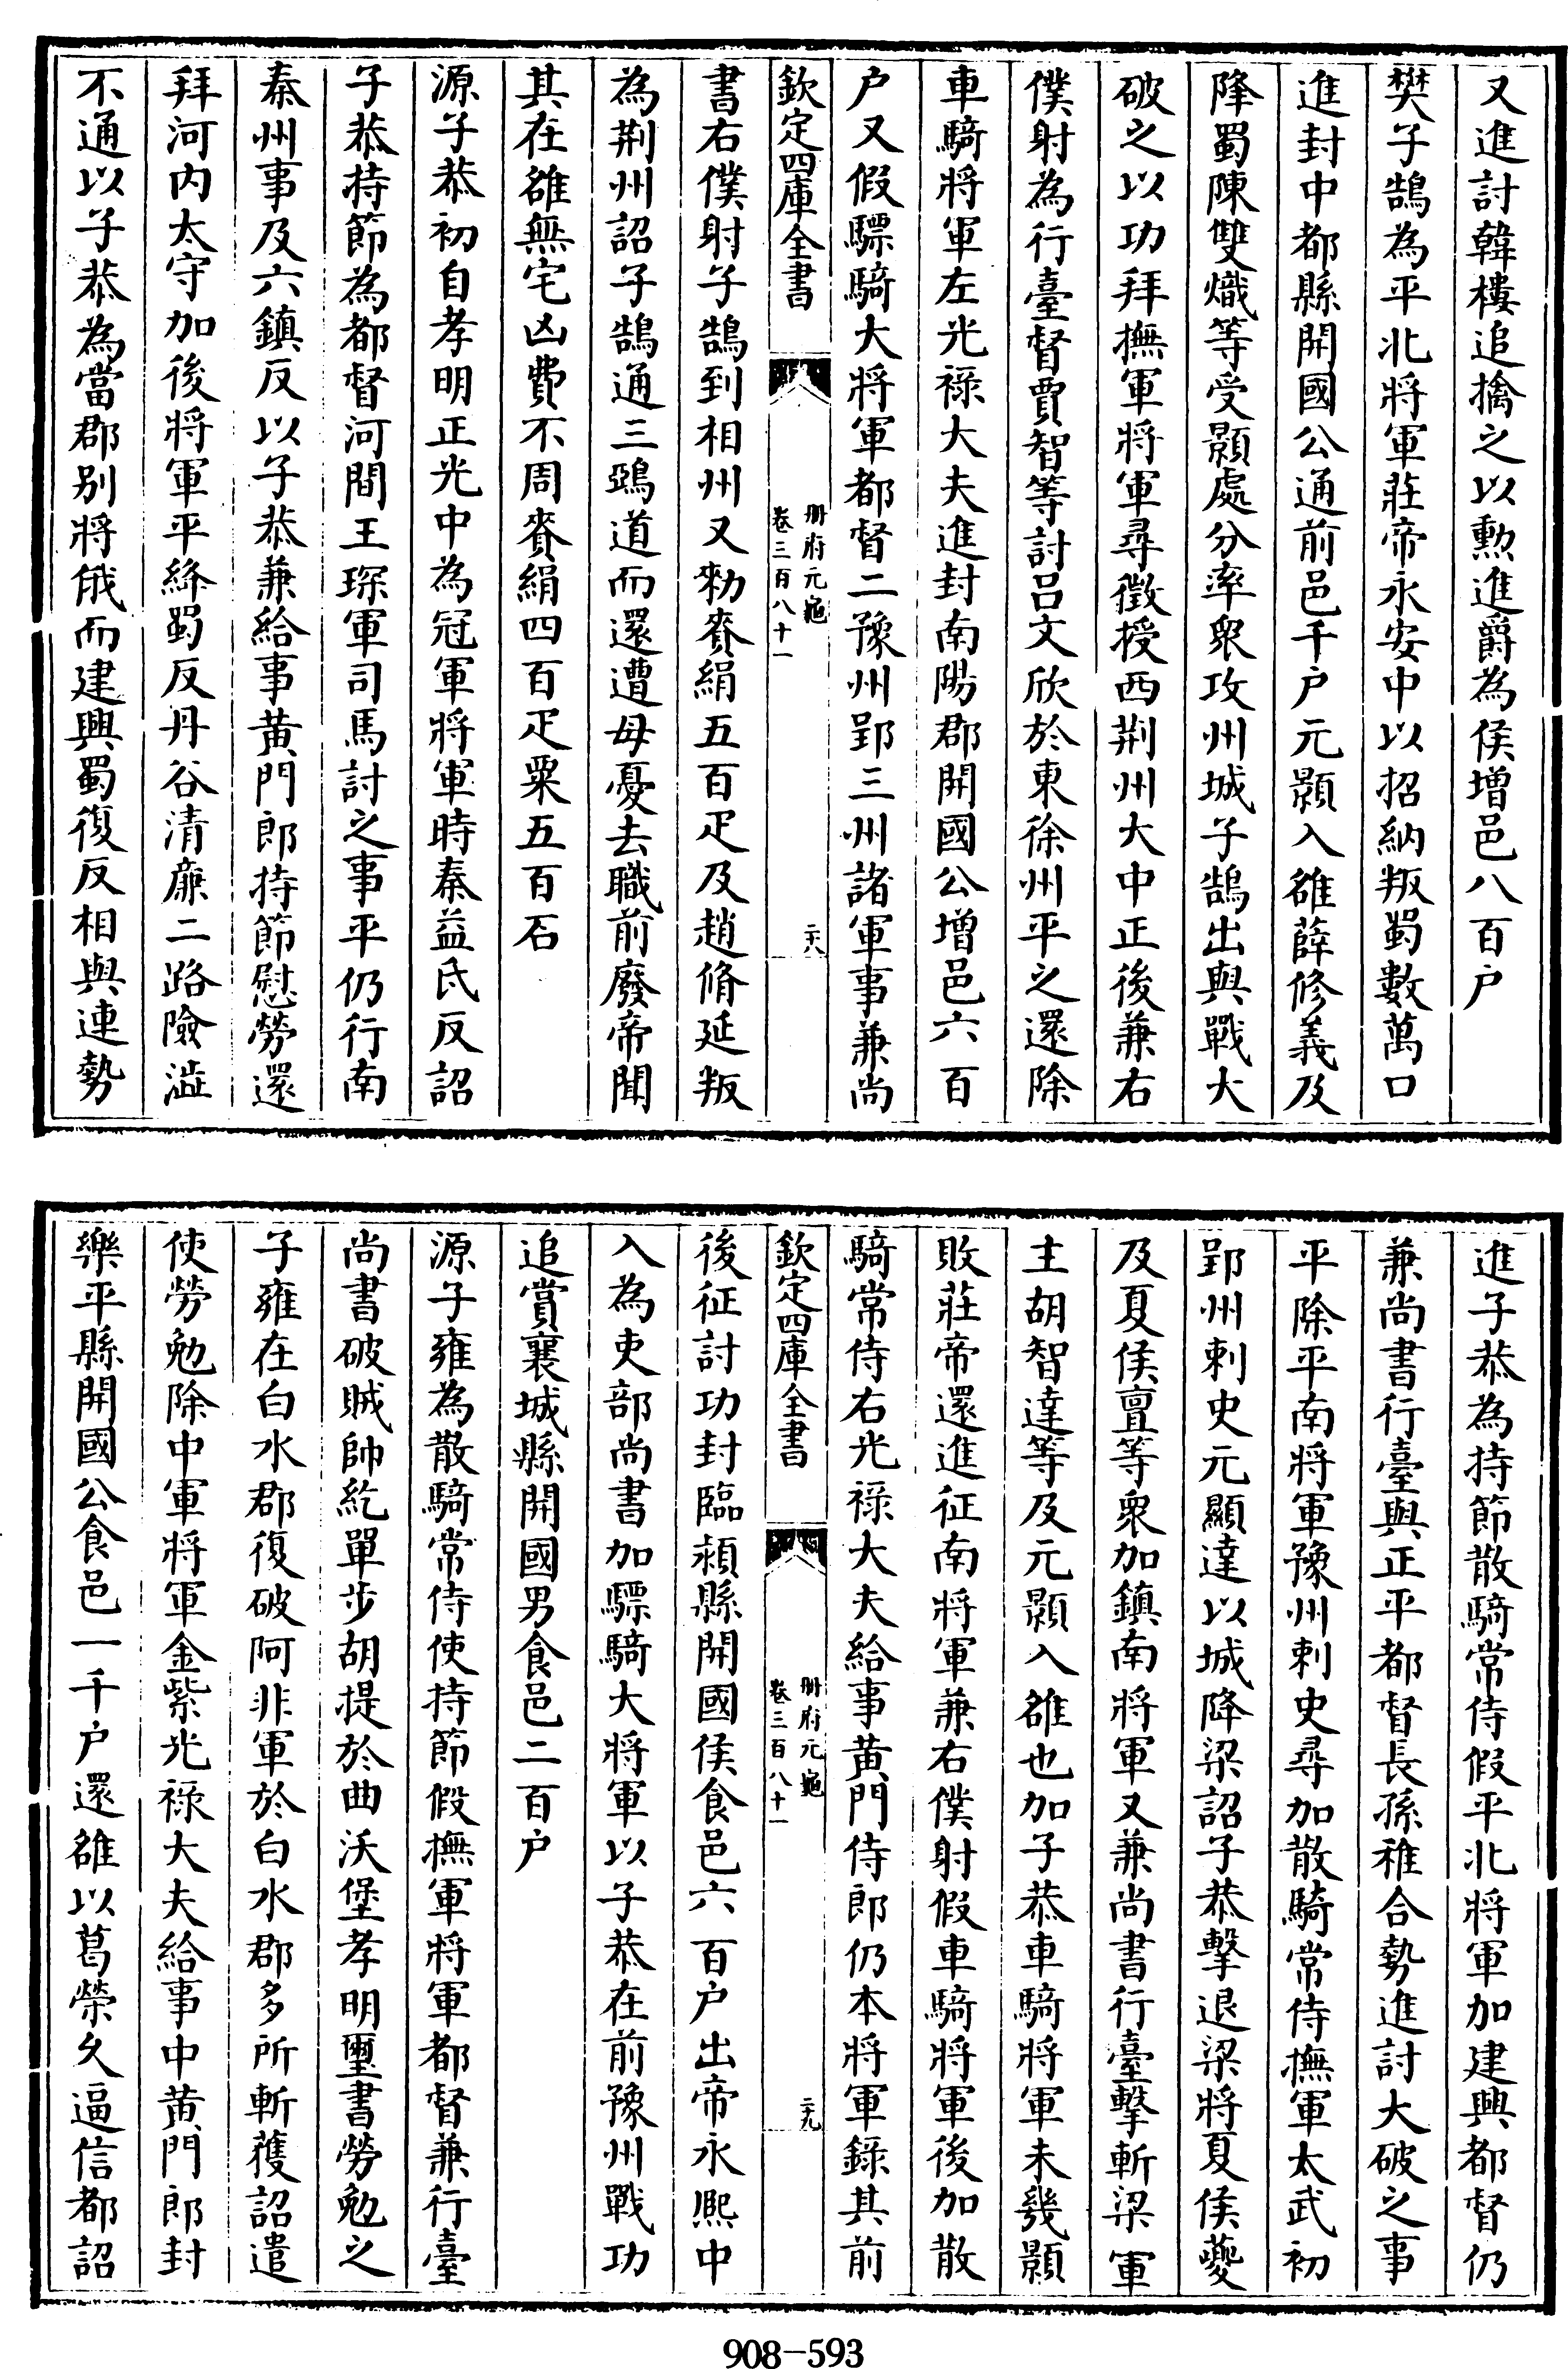 又進討韓樓追擒之以勲進爵為侯增邑八百户
樊子鵠為平北將軍莊帝永安中以招納叛蜀數萬口
進封中都縣開國公通前邑千户元顥入雒薛修義及
降蜀陳雙熾等受顥處分率衆攻州城子鵠出與戰大
破之以功拜撫軍將軍尋徵授西荆州大中正後兼右
僕射為行臺督賈智等討吕文欣於東徐州平之還除
車騎將軍左光禄大夫進封南陽郡開國公增邑六百
户又假驃騎大將軍都督二豫州郢三州諸軍事兼尚
欽定四庫全書
册府元龜
卷三百八十一
二十八
書右僕射子鵠到相州又勑賚絹五百疋及趙脩延叛
為荆州詔子鵠通三鵶道而還遭母憂去職前廢帝聞
其在雒無宅凶費不周賚絹四百疋粟五百石
源子恭初自孝明正光中為冠軍將軍時秦益氐反詔
子恭持節為都督河間王琛軍司馬討之事平仍行南
秦州事及六鎮反以子恭兼給事黄門郎持節慰勞還
拜河内太守加後將軍平絳蜀反丹谷清廉二路險澁
不通以子恭為當郡别將俄而建興蜀復反相與連勢
進子恭為持節散騎常侍假平北將軍加建興都督仍
兼尚書行臺與正平都督長孫稚合勢進討大破之事
平除平南將軍豫州刺史尋加散騎常侍撫軍太武初
郢州刺史元顯達以城降梁詔子恭擊退梁將夏侯夔
及夏侯亶等衆加鎮南將軍又兼尚書行臺擊斬梁軍
主胡智達等及元顥入雒也加子恭車騎將軍未幾顥
敗莊帝還進征南將軍兼右僕射假車騎將軍後加散
騎常侍右光禄大夫給事黄門侍郎仍本將軍錄其前
欽定四庫全書
册府元龜
卷三百八十一
二十九
後征討功封臨潁縣開國侯食邑六百户出帝永熙中
入為吏部尚書加驃騎大將軍以子恭在前豫州戰功
追賞襄城縣開國男食邑二百户
源子雍為散騎常侍使持節假撫軍將軍都督兼行臺
尚書破賊帥紇單步胡提於曲沃堡孝明璽書勞勉之
子雍在白水郡復破阿非軍於白水郡多所斬獲詔遣
使勞勉除中軍將軍金紫光禄大夫給事中黄門郎封
樂平縣開國公食邑一千户還雒以葛榮久逼信都詔
908-593